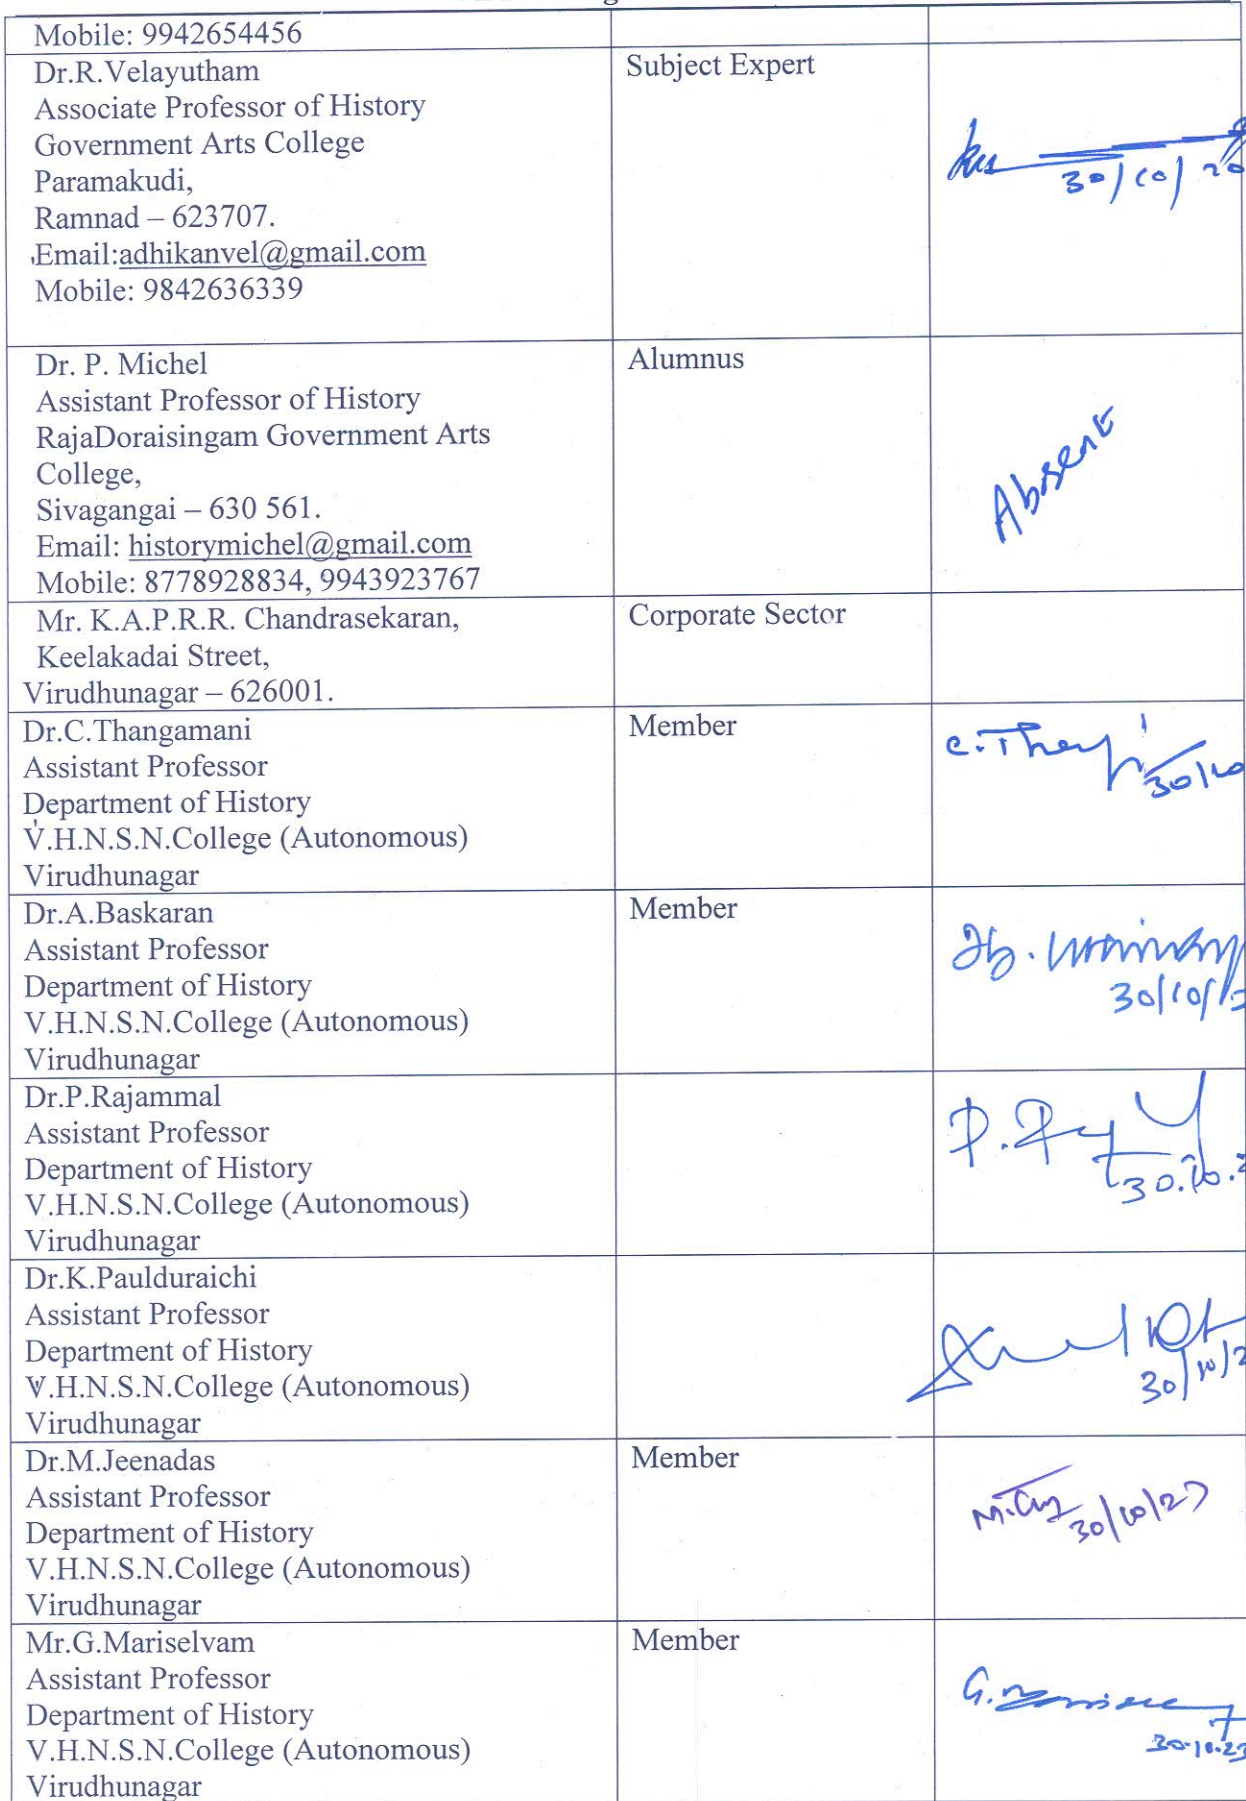 Mobile: 9942654456
Dr.R.Velayutham
Associate Professor of History
Government Arts College
Paramakudi,
Ramnad – 623707.
Email:adhikanvel@gmail.com
Mobile: 9842636339
Subject Expert
30/10/20
Dr. P. Michel
Assistant Professor of History
RajaDoraisingam Government Arts
College,
Sivagangai – 630 561.
Email: historymichel@gmail.com
Mobile: 8778928834, 9943923767
Alumnus
Absent
Mr. K.A.P.R.R. Chandrasekaran,
Keelakadai Street,
Virudhunagar – 626001.
Corporate Sector
Dr.C.Thangamani
Assistant Professor
Department of History
V.H.N.S.N.College (Autonomous)
Virudhunagar
Member
30/10
Dr.A.Baskaran
Assistant Professor
Department of History
V.H.N.S.N.College (Autonomous)
Virudhunagar
Member
30/10/
Dr.P.Rajammal
Assistant Professor
Department of History
V.H.N.S.N.College (Autonomous)
Virudhunagar
30.10.2
Dr.K.Paulduraichi
Assistant Professor
Department of History
V.H.N.S.N.College (Autonomous)
Virudhunagar
30/10/2
Dr.M.Jeenadas
Assistant Professor
Department of History
V.H.N.S.N.College (Autonomous)
Virudhunagar
Member
30/10/23
Mr.G.Mariselvam
Assistant Professor
Department of History
V.H.N.S.N.College (Autonomous)
Virudhunagar
Member
30.10.23